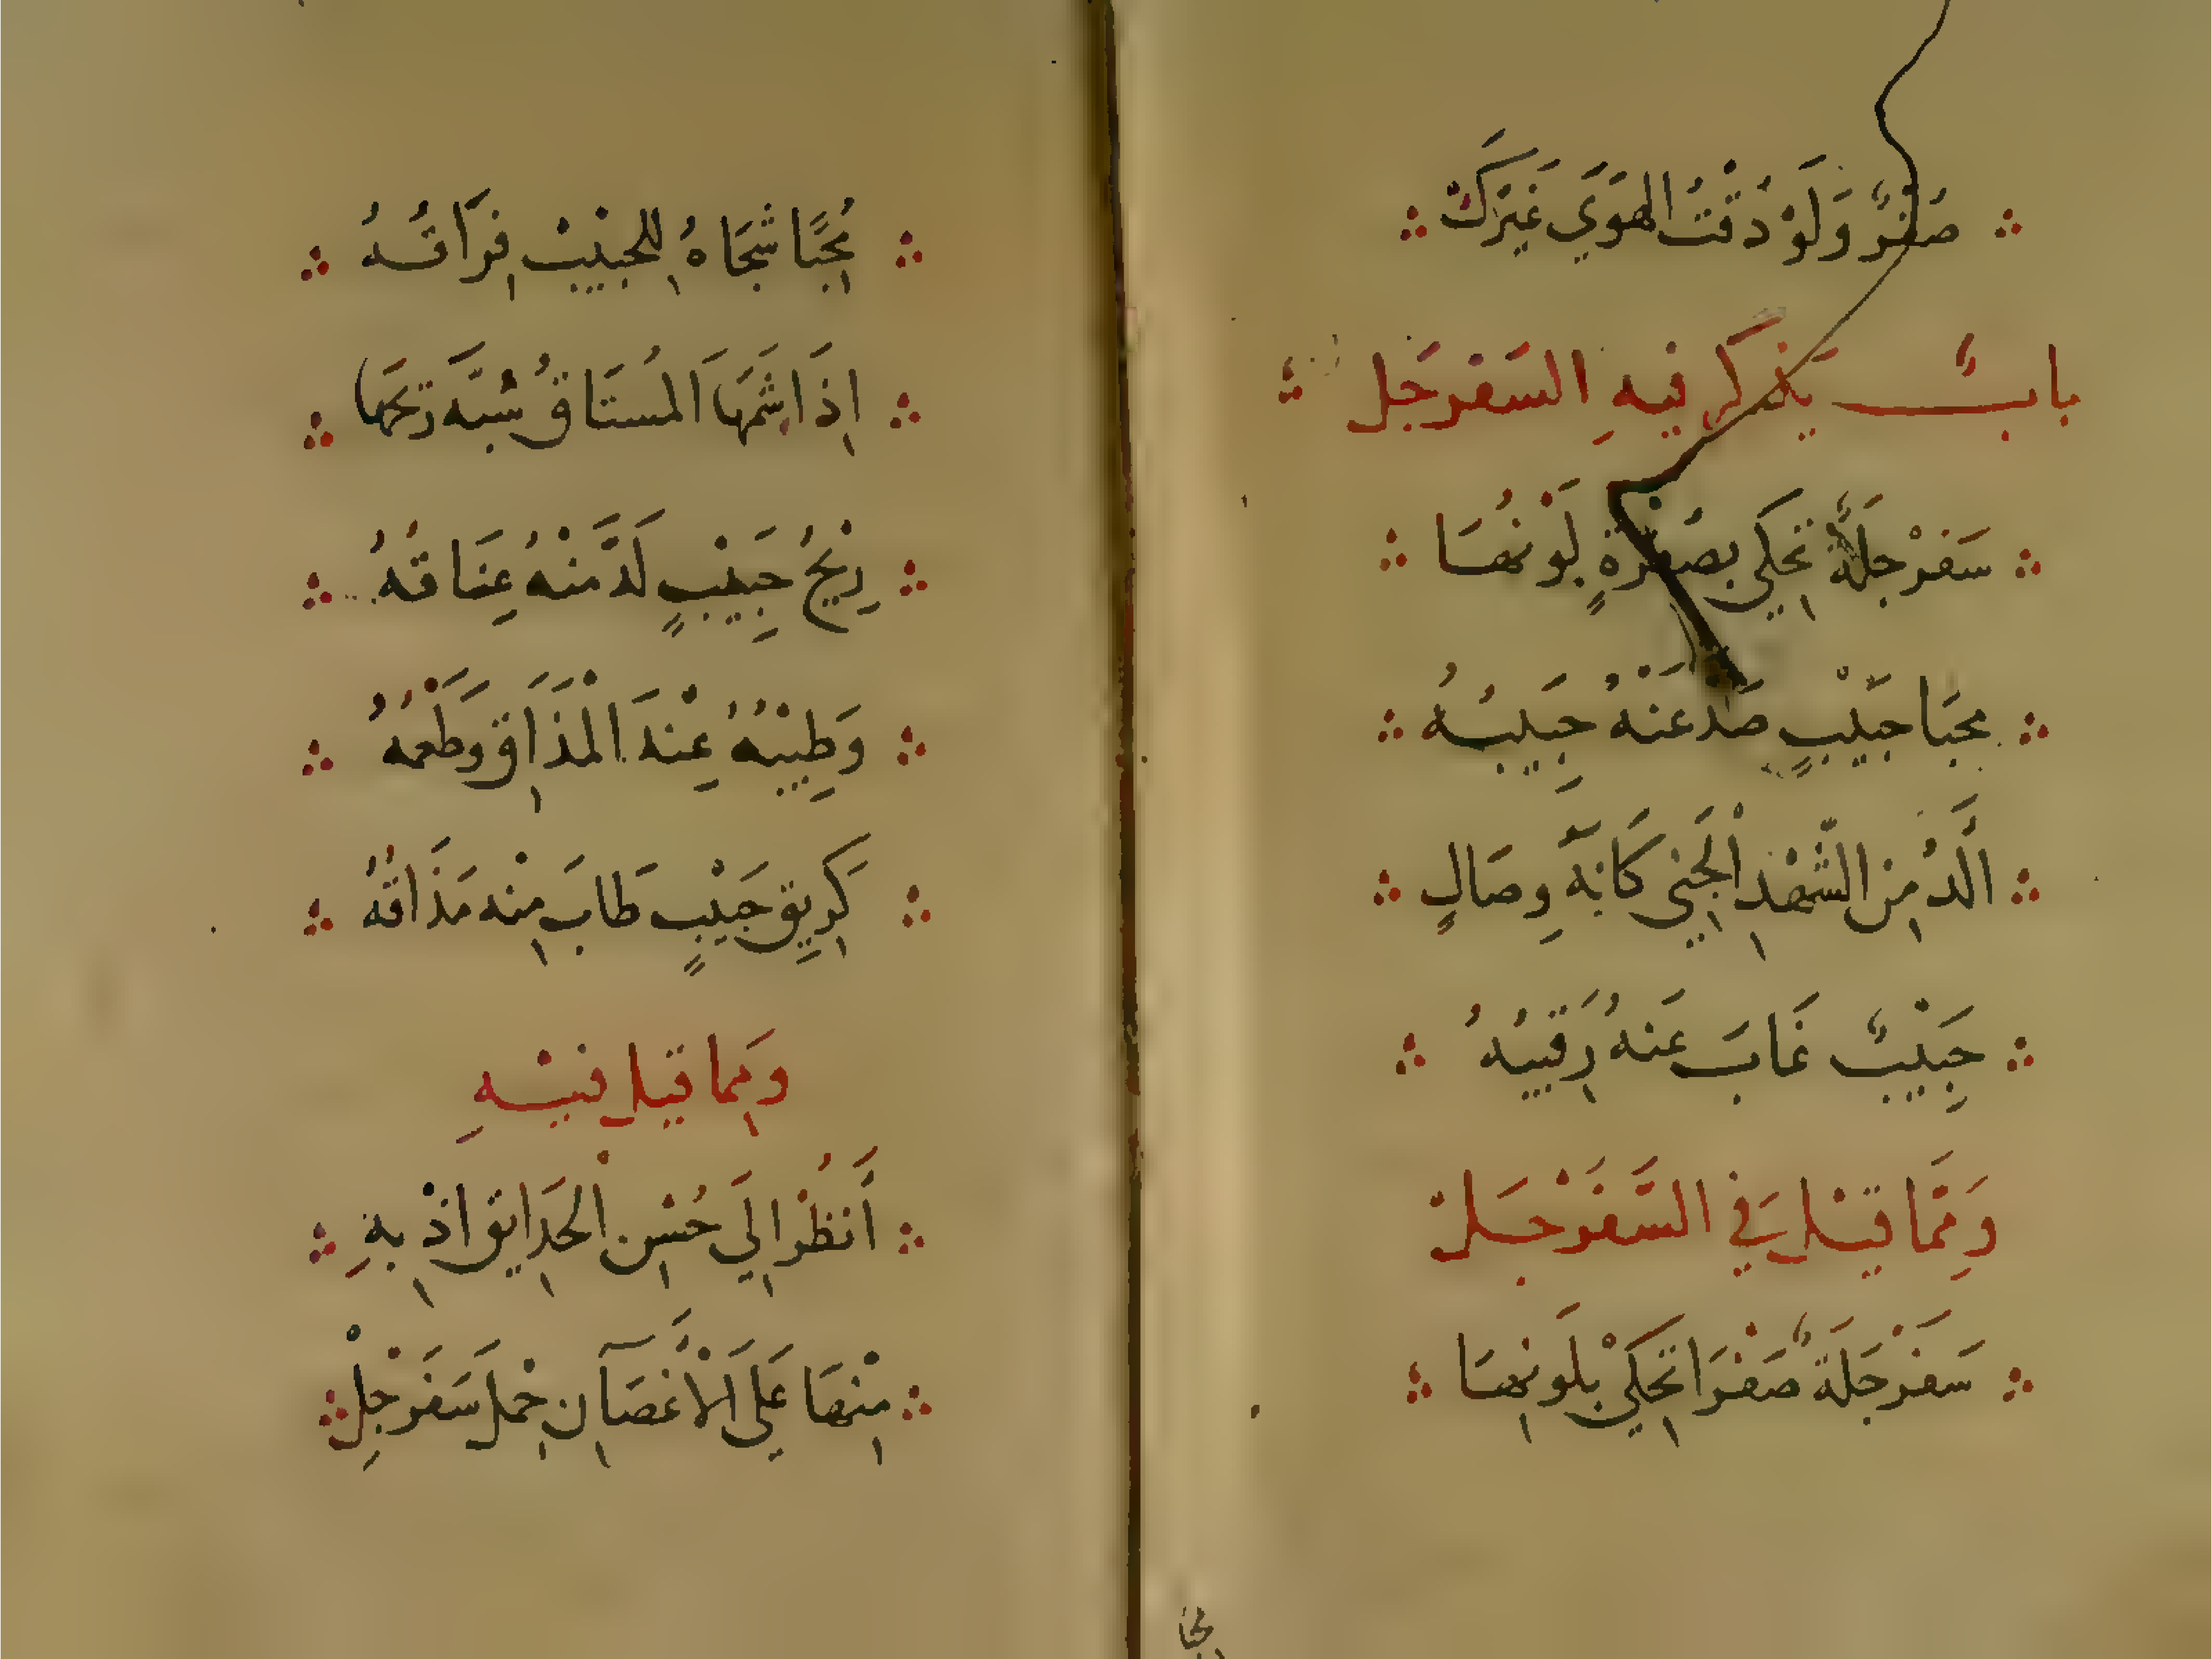 صُفْرٌ وَلَوْ دُقْتُ الهَوَي غَيَّرَكْ
بابٌ يذكر فيهِ السَفرجَل
سَفرْجلَةٌ تحكي بصُفْرَةٍ لَوْنُهَا
محبَا حبَيْبٍ صَدَّ عَنْهُ حَبِيبُهُ
الَّدُ مِنَ الشَّهْدِ الْجَني كَانَهُ وِصَالٍ
حَبِيْبٌ غَابَ عَنهُ رَقيبهُ
وَمِمَّا قيْل في السَّفَرْجَلْ
سَفَرْجَلَةٌ صَفْرَا تحْكِيْ بلَونِهَا
محِبًا شجَاهُ للحبيْبْ فِرَاقُهُ
اِذَا شمَّهَا المُستَاقُ شبَّهَ رِيحَهَا
رِيْحُ حَبِيْبٍ لَدَّ منْهُ عِنَاقُهُ
وَطِيْبُهُ عِنْدَ الْمَذَاقِ وَطَعْمُهُ
كَرِيقِ حَبَيْبٍ طَابَ مِنْه مَذَاقُهُ
ومِما قيل فيْهِ
أَنظُر الِيَ حُسْنِ الْحَدَايِقِ اذْ بِهِ
مِنْهَا عَلَي الْاَغْصَانِ حْمِلَ سَفَرْجلْ
محبا